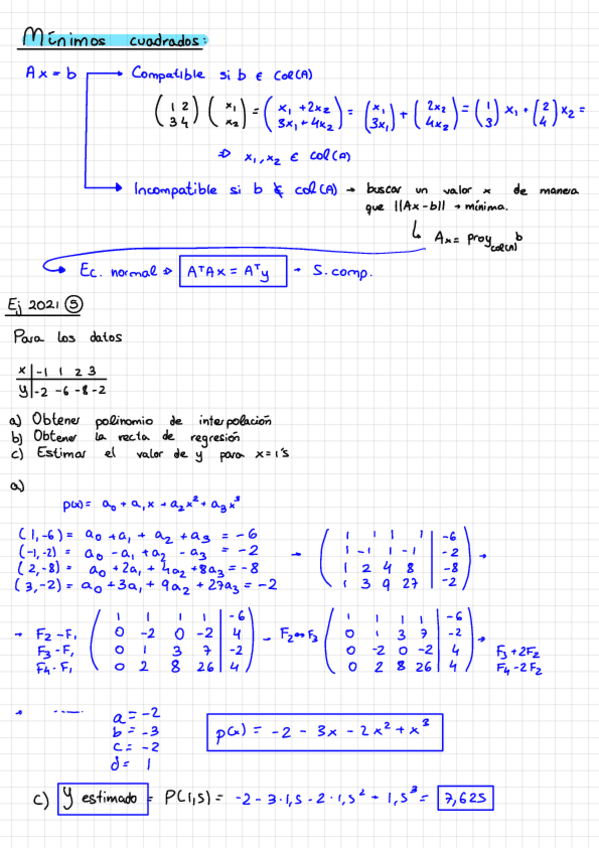 Mínimos cuadrados:
Ax = b → Compatible si b ∈ Col(A)
(1 2 / 3 4) (x₁ / x₂) = (x₁ + 2x₂ / 3x₁ + 4x₂) = (x₁ / 3x₁) + (2x₂ / 4x₂) = (1 / 3) x₁ + (2 / 4) x₂ =
⇒ x₁, x₂ ∈ col(A)
→ Incompatible si b ∉ col(A) → buscar un valor x de manera
que ||Ax - b|| → mínima.
↳ Ax = proy_col(A) b
→ Ec. normal ⇒ AᵀAx = Aᵀy → S. comp.
Ej 2021 ⑤
Para los datos
x | -1 1 2 3
y | -2 -6 -8 -2
a) Obtener polinomio de interpolación
b) Obtener la recta de regresión
c) Estimar el valor de y para x = 1'5
a)
p(x) = a₀ + a₁x + a₂x² + a₃x³
(1, -6) = a₀ + a₁ + a₂ + a₃ = -6
(-1, -2) = a₀ - a₁ + a₂ - a₃ = -2
(2, -8) = a₀ + 2a₁ + 4a₂ + 8a₃ = -8
(3, -2) = a₀ + 3a₁ + 9a₂ + 27a₃ = -2
→ (1 1 1 1 | -6
1 -1 1 -1 | -2
1 2 4 8 | -8
1 3 9 27 | -2) →
→ F₂ - F₁
F₃ - F₁
F₄ - F₁
(1 1 1 1 | -6
0 -2 0 -2 | 4
0 1 3 7 | -2
0 2 8 26 | 4)
→ F₂ ↔ F₃
(1 1 1 1 | -6
0 1 3 7 | -2
0 -2 0 -2 | 4
0 2 8 26 | 4) →
F₃ + 2F₂
F₄ - 2F₂
→ ......
a = -2
b = -3
c = -2
d = 1
p(x) = -2 - 3x - 2x² + x³
c) y estimado = P(1,5) = -2 - 3·1,5 - 2·1,5² + 1,5³ = 7,625